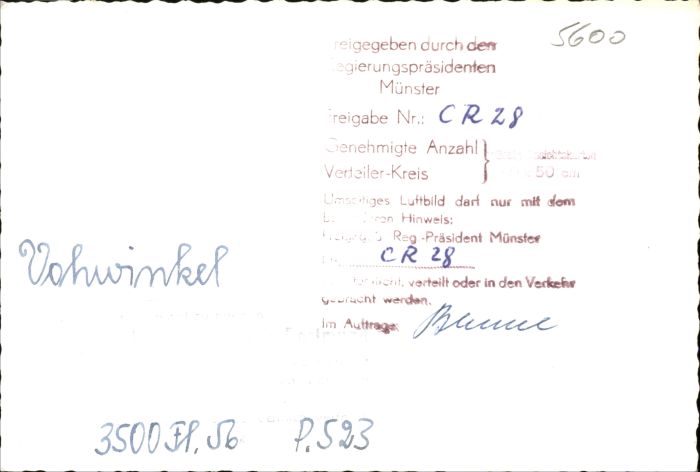 5600
Freigegeben durch den
Regierungspräsidenten
Münster
Freigabe Nr.: CR 28
Genehmigte Anzahl
Verteiler-Kreis
50 cm
Umseitiges Luftbild darf nur mit dem
Hinweis:
Reg.-Präsident Münster
CR 28
verteilt oder in den Verkehr
gebracht werden.
Im Auftrage: Blume
Vohwinkel
3500 Fl. 56 P. 523